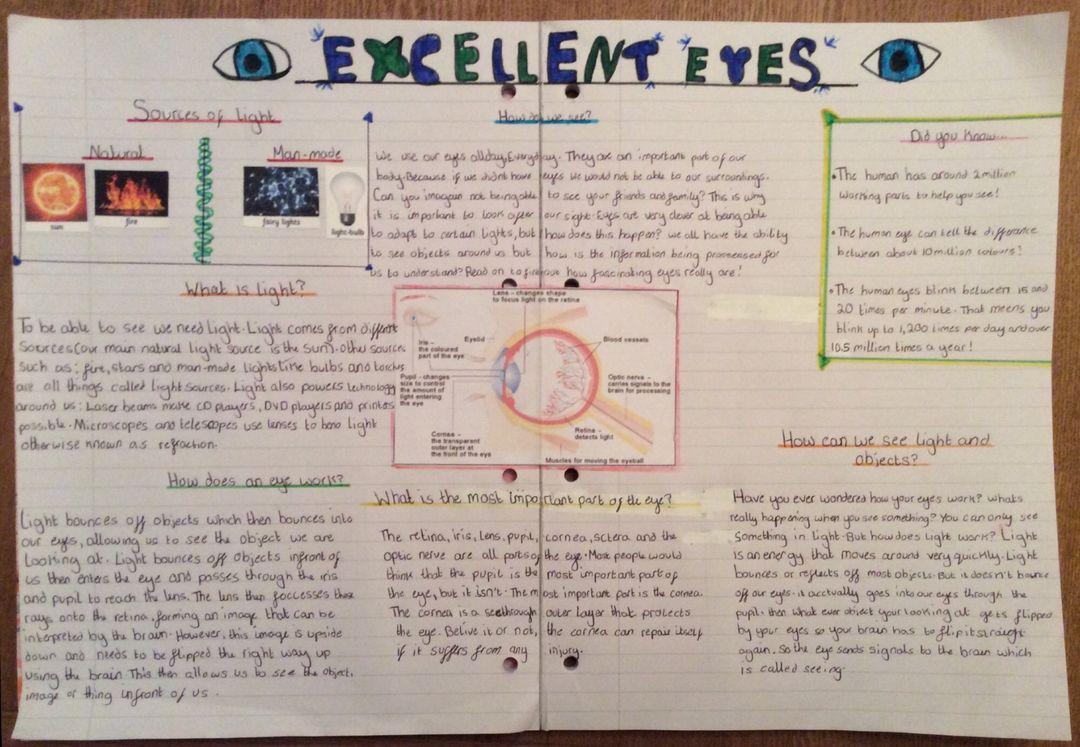 EXCELLENT EYES
Sources of light
Natural
Man-made
sun
fire
fairy lights
light-bulb
How do we see?
We use our eyes all day, Everyday. They are an important part of our
body. Because if we didnt have eyes we would not be able to our surroundings.
Can you imagain not being able to see your friends and family? This is why
it is important to look after our sight. Eyes are very clever at being able
to adapt to certain lights, but how does this happen? we all have the ability
to see objects around us but how is the information being prosessed for
us to understand? Read on to find out how fascinating eyes really are!
Did you know...
•The human has around 2 million
working parts to help you see!
•The human eye can tell the difference
between about 10 million colours!
•The human eyes blink between 15 and
20 times per minute. That meens you
blink up to 1,200 times per day and over
10.5 million times a year!
What is light?
To be able to see we need light. Light comes from different
sources (our main natural light source is the sun). Other sources
such as: fire, stars and man-made lights like bulbs and torches
are all things called light sources. Light also powers technology
around us: Laser beams make CD players, DVD players and printers
possible. Microscopes and telescopes use lenses to bend light
otherwise known as refraction.
Lens – changes shape
to focus light on the retina
Iris –
the coloured
part of the eye
Eyelid
Blood vessels
Pupil - changes
size to control
the amount of
light entering
the eye
Optic nerve –
carries signals to the
brain for processing
Cornea –
the transparent
outer layer at
the front of the eye
Retina –
detects light
Muscles for moving the eyeball
How does an eye work?
Light bounces off objects which then bounces into
our eyes, allowing us to see the object we are
looking at. Light bounces off objects infront of
us then enters the eye and passes through the iris
and pupil to reach the lens. The lens then foccesses these
rays onto the retina, forming an image that can be
interpreted by the brain. However, this image is upside
down and needs to be flipped the right way up
using the brain. This then allows us to see the object,
image or thing infront of us.
What is the most important part of the eye?
The retina, iris, lens, pupil, cornea, sclera and the
optic nerve are all parts of the eye. Most people would
think that the pupil is the most important part of
the eye, but it isn't. The most important part is the cornea.
The cornea is a seethrough outer layer that protects
the eye. Belive it or not, the cornea can repair itself
if it suffers from any injury.
How can we see light and
objects?
Have you ever wondered how your eyes work? whats
really happening when you see something? You can only see
Something in light. But how does light work? Light
is an energy that moves around very quickly. Light
bounces or reflects off most objects. But it doesn't bounce
off our eyes. it acctually goes into our eyes through the
pupil. then what ever object your looking at gets flipped
by your eyes so your brain has to flip it straight
again. So the eye sends signals to the brain which
is called seeing.